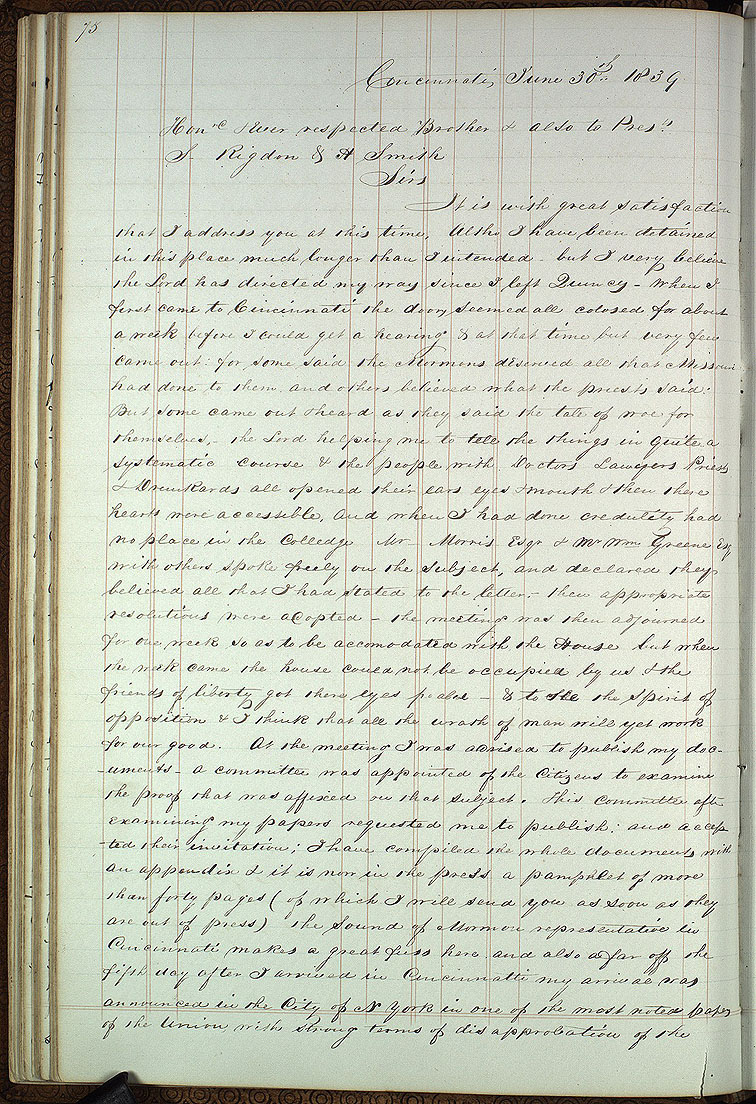 75
Cincinnati June 30th 1839
Honrd & ever respected Brother & also to Prest
S Rigdon & H Smith
Sirs
It is with great satisfaction
that I address you at this time, Altho I have been detained
in this place much longer than I intended - but I very believe
the Lord has directed my way since I left Quincy - When I
first came to Cincinnati the doors seemed all colosed for about
a week before I could get a hearing & at that time but very few
came out: for some said the Mormons diserved all that Missouri
had done to them and others believed what the priests said:
But some came out & heard as they said the tale of woe for
themselves, - the Lord helping me to tell the things in quite a
systematic course & the people with Doctors Lawyers Priests
& Drunkards all opened their ears eyes & mouth & then there
hearts were accessible, and when I had done credulity had
no place in the Colledge Mr Morris Esqr & Mr Wm Greene Esq
with others spoke freely on the subject, and declared they
believed all that I had stated to the letter, - then appropriate
resolutions were adopted - the meeting was then adjourned
for one week so as to be accomodated with the House but when
the week came the house could not be occupied by us & the
friends of liberty got there eyes pealed - & to see the spirit of
opposition & I think that all the wrath of man will yet work
for our good. At the meeting I was advised to publish my doc-
-uments - a committee was appointed of the Citizens to examine
the proof that was affixed on that subject. This committee after
examining my papers requested me to publish; and accep-
-ted their invitation; I have compiled the whole documents with
an appendix & it is now in the press a pamphlet of more
than forty pages (of which I will send you as soon as they
are out of press) the sound of Mormon representative in
Cincinnati makes a great fuss here and also afar off the
fifth day after I arrived in Cincinnatti my arrival was
announced in the City of N York in one of the most noted papers
of the Union with strong terms of disapprobation of the